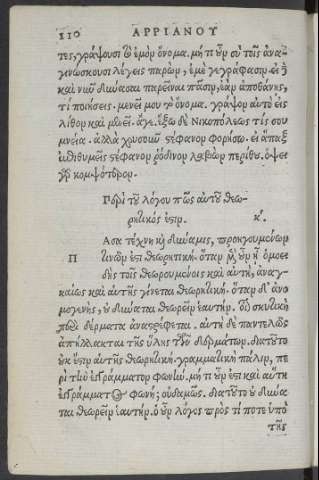 110 ΑΡΡΙΑΝΟΥ
τες, γράψουσι τὸ ἐμὸν ὄνομα. μή τι οὖν σὺ τοῖς ἀνα-
γινώσκουσι λέγεις παρὼν, ἐμὲ γεγράφασιν. εἰ δὲ
καὶ νῦν δύνασαι παρεῖναι πᾶσιν, ἐὰν ἀποθάνῃς,
τί ποιήσεις. μενεῖ μου τὸ ὄνομα. γράψον αὐτὸ εἰς
λίθον καὶ μενεῖ. ἄγε. ἔξω δὲ Νικοπόλεως τίς σου
μνεία. ἀλλὰ χρυσοῦν στέφανον φορήσω. εἰ ἅπαξ
ἐπιθυμεῖς στέφανον ῥόδινον λαβὼν περίθου. ὄψει
γὰρ κομψότερον.
Περὶ τοῦ λόγου πῶς αὑτοῦ θεωρ-
ρητικός ἐστιν. κʹ.
Π
Ασα τέχνη καὶ δύναμις, προηγουμένων
τινῶν ἐστὶ θεωρητική. ὅταν μὲν οὖν ᾖ ὁμοει
δὴς τοῖς θεωρουμένοις καὶ αὐτὴ, ἀναγ-
καίως καὶ αὑτῆς γίνεται θεωρητική. ὅταν δ' ἀνο
μογενὴς, οὐ δύναται θεωρεῖν ἑαυτήν. οἷον σκυτικὴ
περὶ δέρματα ἀναστρέφεται. αὐτὴ δὲ παντελῶς
ἀπήλλακται τῆς ὕλης τῶν δερμάτων. διατοῦτο
οὐκ ἔστιν αὑτῆς θεωρητική. γραμματικὴ πάλιν, πε
ρὶ τὴν ἐγγράμματον φωνήν. μή τι οὖν ἐστὶ καὶ αὕτη
ἐγγράμματος φωνή; οὐδαμῶς. διατοῦτο οὐ δύνα
ται θεωρεῖν ἑαυτήν. ὁ οὖν λόγος πρὸς τί ποτε ὑπὸ
τῆς